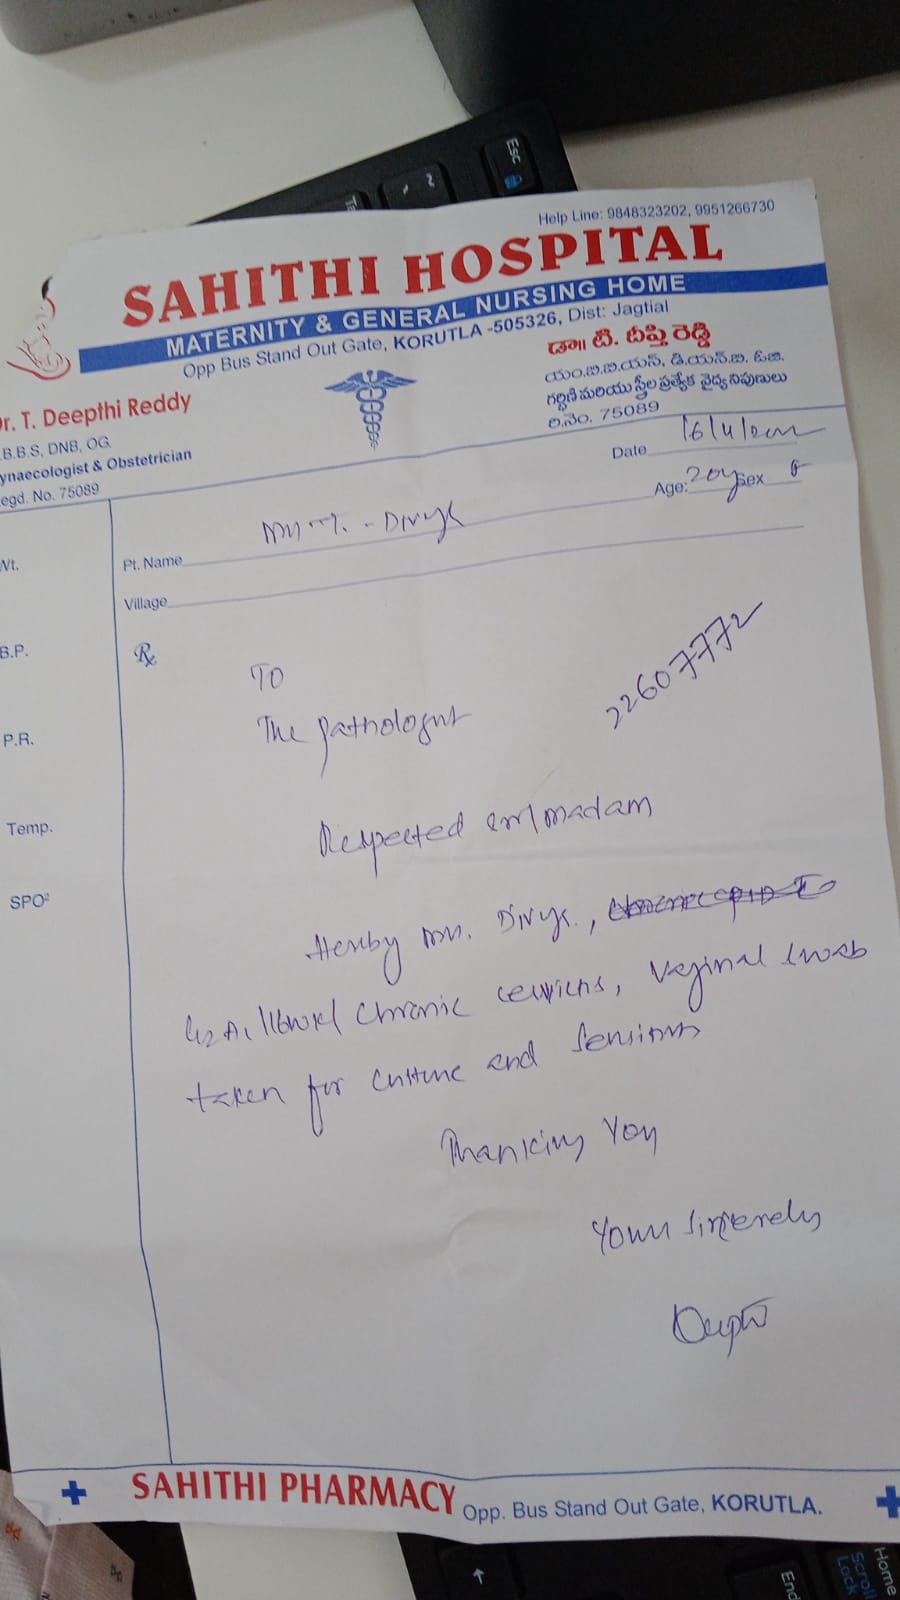 Help Line: 9848323202, 9951266730
SAHITHI HOSPITAL
MATERNITY & GENERAL NURSING HOME
Opp Bus Stand Out Gate, KORUTLA -505326, Dist: Jagtial
r. T. Deepthi Reddy
.B.B.S, DNB, OG.
ynaecologist & Obstetrician
egd. No. 75089
డా॥ టి. దీప్తి రెడ్డి
యం.బి.బి.యస్, డి.యన్.బి. ఓ.జి.
గర్భిణి మరియు స్త్రీల ప్రత్యేక వైద్య నిపుణులు
రి.నెం. 75089
Date 16/4/
Age: 20y Sex
Pt. Name T. - Divya
Village
Wt.
B.P.
P.R.
Temp.
SPO²
Rx
TO
The pathologist
22607772
Respected sir/madam
Hereby Mrs. Divya,
chronic cervicitis, vaginal swab
taken for culture and
Thanking You
Yours sincerely
SAHITHI PHARMACY Opp. Bus Stand Out Gate, KORUTLA.
Esc
Home
Scroll
Lock
End